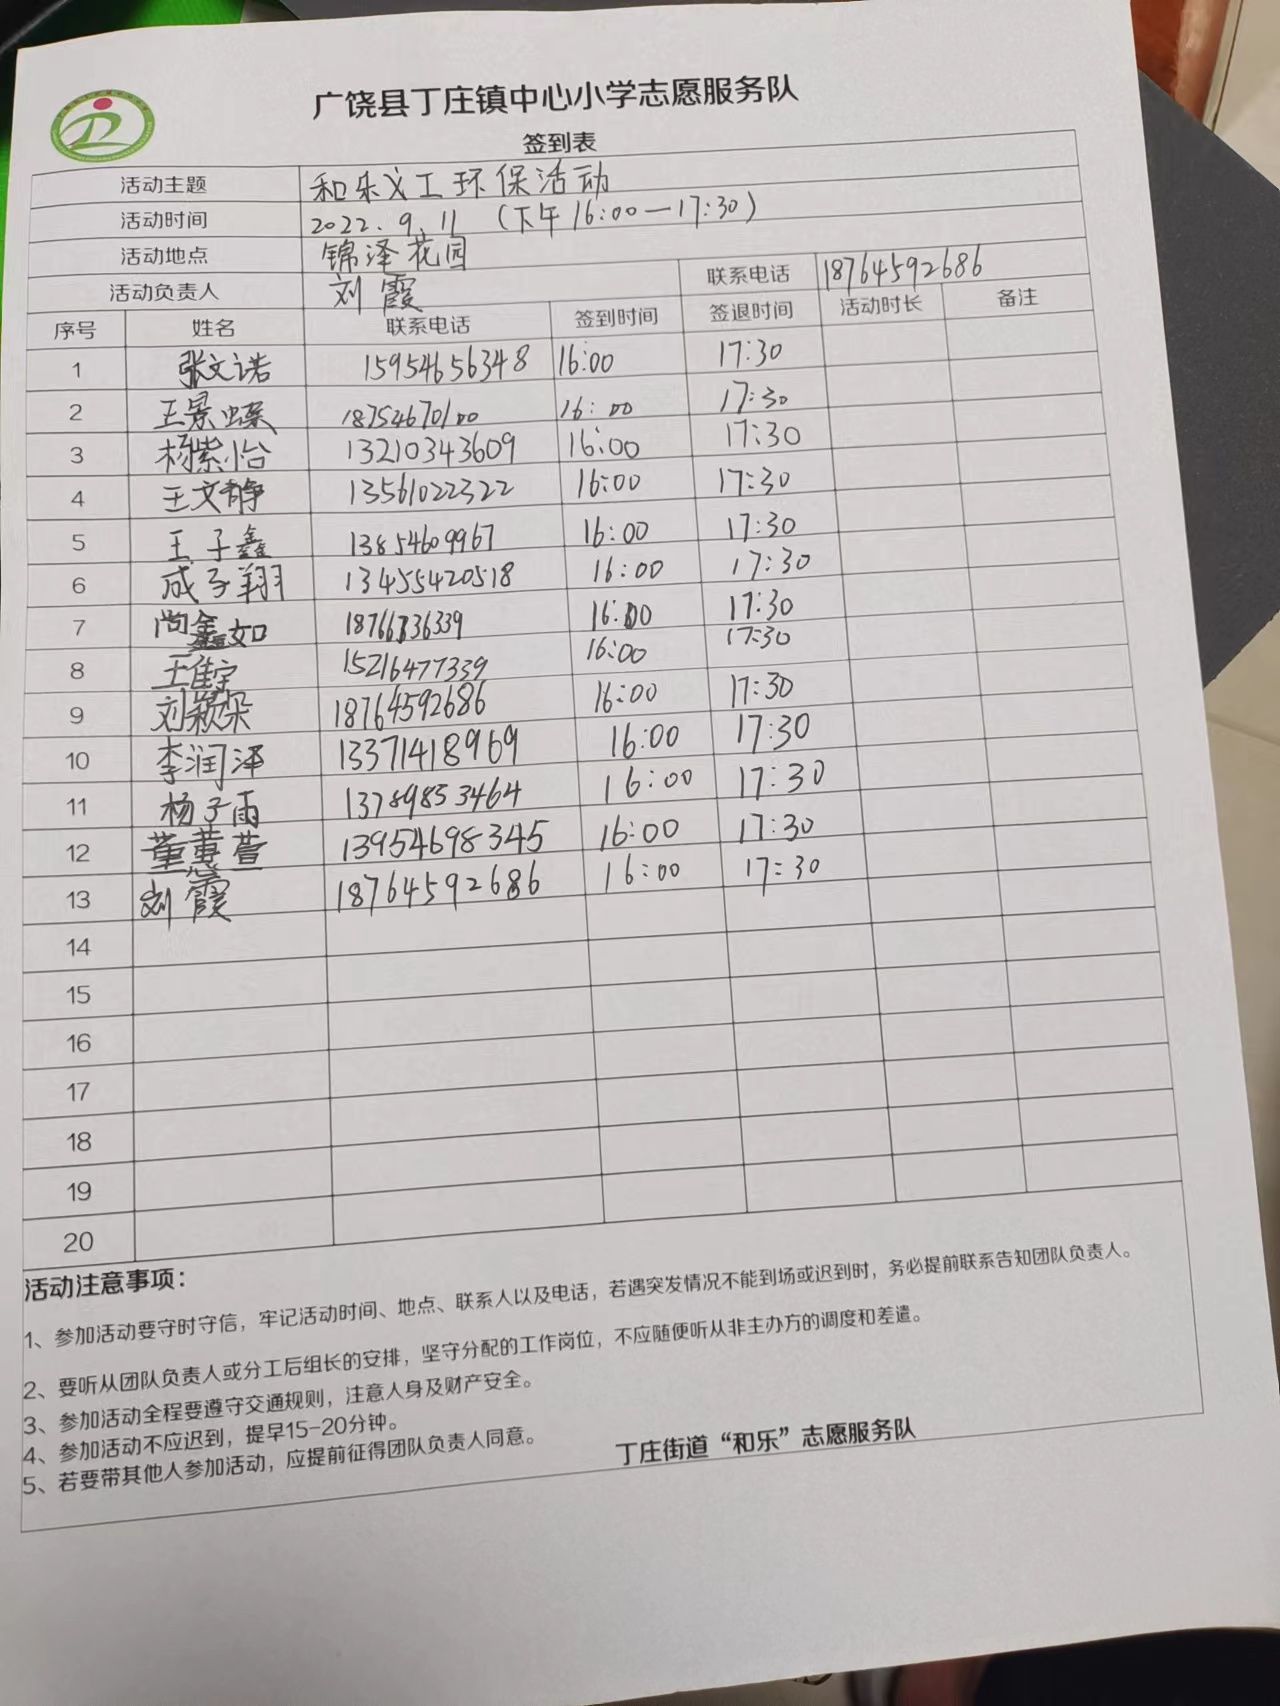 广饶县丁庄镇中心小学志愿服务队
签到表
活动主题 和乐义工环保活动
活动时间 2022.9.11 (下午16:00—17:30)
活动地点 锦泽花园
活动负责人 刘霞 联系电话 18764592686
序号 姓名 联系电话 签到时间 签退时间 活动时长 备注
1 张文诺 15954656348 16:00 17:30
2 王景蝶 18754670100 16:00 17:30
3 杨紫怡 13210343609 16:00 17:30
4 王文静 13561022322 16:00 17:30
5 王子鑫 13854609967 16:00 17:30
6 成子翔 13455420518 16:00 17:30
7 尚鑫如 16:00 17:30
8 王佳宇 15216477339 16:00 17:30
9 刘颖朵 18764592686 16:00 17:30
10 李润泽 13371418969 16:00 17:30
11 杨子雨 13789853464 16:00 17:30
12 董蕙萱 13954698345 16:00 17:30
13 刘霞 18764592686 16:00 17:30
14
15
16
17
18
19
20
活动注意事项：
1、参加活动要守时守信，牢记活动时间、地点、联系人以及电话，若遇突发情况不能到场或迟到时，务必提前联系告知团队负责人。
2、要听从团队负责人或分工后组长的安排，坚守分配的工作岗位，不应随便听从非主办方的调度和差遣。
3、参加活动全程要遵守交通规则，注意人身及财产安全。
4、参加活动不应迟到，提早15-20分钟。
5、若要带其他人参加活动，应提前征得团队负责人同意。
丁庄街道“和乐”志愿服务队